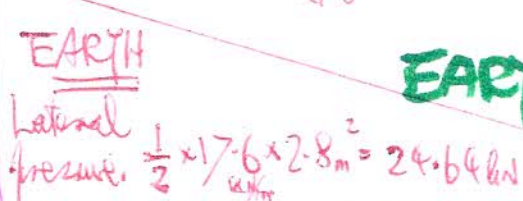 EARTH
EAR
Lateral
pressure. 1/2 × 17.6 × 2.8m² = 24.64 kN